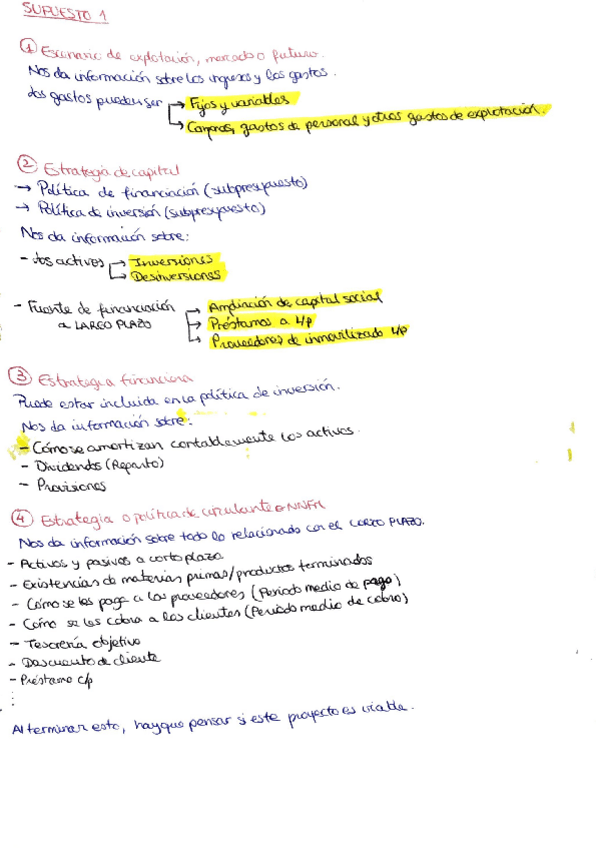 SUPUESTO 1
① Escenario de explotación, mercado o futuro.
Nos da información sobre los ingresos y los gastos.
Los gastos pueden ser → Fijos y variables
→ Compras, gastos de personal y otros gastos de explotación.
② Estrategia de capital
→ Política de financiación (subpresupuesto)
→ Política de inversión (subpresupuesto)
Nos da información sobre:
- Los activos → Inversiones
→ Desinversiones
- Fuente de financiación a LARGO PLAZO → Ampliación de capital social
→ Préstamos a l/p
→ Proveedores de inmovilizado l/p
③ Estrategia financiera
Puede estar incluida en la política de inversión.
Nos da información sobre:
- Cómo se amortizan contablemente los activos.
- Dividendos (Reparto)
- Provisiones
④ Estrategia o política de circulante o NNFR
Nos da información sobre todo lo relacionado con el CORTO PLAZO.
- Activos y pasivos a corto plazo
- Existencias de materias primas/productos terminados
- Cómo se les paga a los proveedores (Periodo medio de pago)
- Cómo se les cobra a los clientes (Periodo medio de cobro)
- Tesorería objetivo
- Descuento de cliente
- Préstamo c/p
⋮
Al terminar esto, hay que pensar si este proyecto es viable.